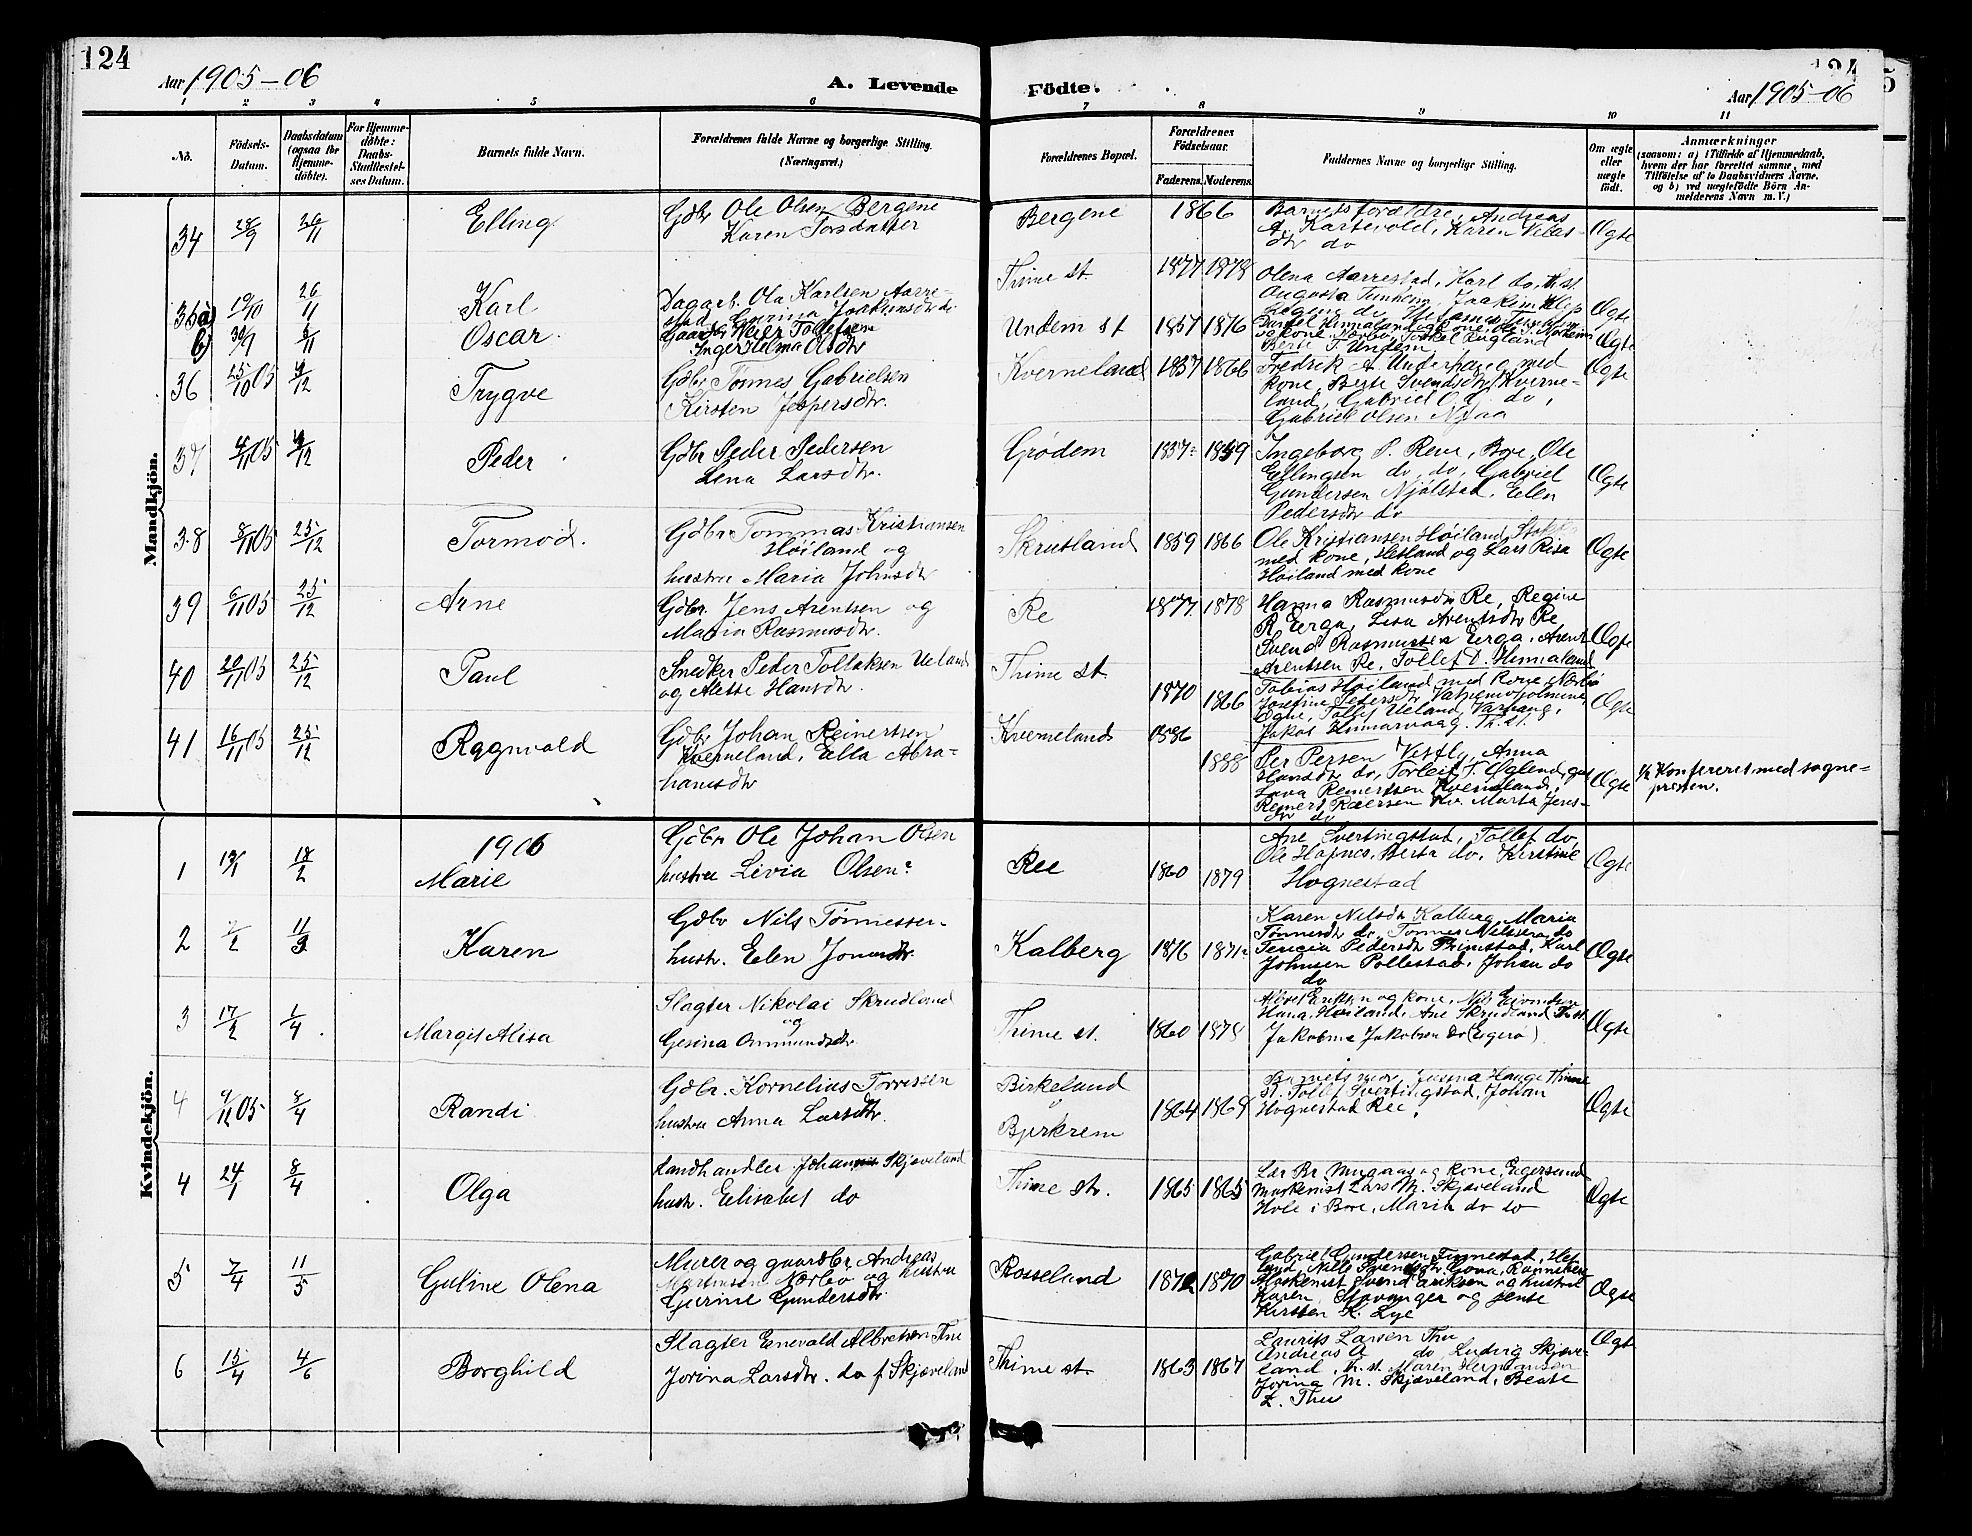 124
Aar 1905-06
A. Levende
Födte.
124
Aar 1905-06
1 2 3 4 5 6 7 8 9 10 11
No.
Födsels-
Datum.
Daabsdatum
(ogsaa for
Hjemme-
döbte).
For Hjemme-
döbte:
Daabs-
Stadfæstel-
ses Datum.
Barnets fulde Navn.
Forældrenes fulde Navne og borgerlige Stilling.
(Næringsvei.)
Forældrenes Bopæl.
Forældrenes
Födselsaar.
Faderens. Moderens.
Faddernes Navne og borgerlige Stilling.
Om ægte
eller
uægte
födt.
Anmærkninger
(saasom: a) i Tilfælde af Hjemmedaab,
hvem der har forrettet samme, med
Tilföielse af to Daabsvidners Navne.
og b) ved uægtefödte Börn An-
melderens Navn m. V.)
Mandkjön.
34 28/9 26/11 Elling
Gdbr Ole Olsen Bergene
Karen Torsdatter
Bergene 1866
Barnets forældre, Andreas
A. Kartevold, Karen
dtr do
Ægte
35a) 19/10 26/11 Karl
Dagarb. Ola Karlsen Aarre-
stad, Gurina Joakimsdtr do
Thime st. 1877 1878
Olena Aarrestad, Karl do, Th. st.
Augusta Tunheim, Joakim Klep
Ægte
b) 30/9 5/11 Oscar
Tollefsen
Inger Helma Olsdtr
Undem st 1857 1876
Berte T. Undem
Ægte
36 25/10 05 4/12 Trygve
Gdbr Tönnes Gabrielsen
Kirsten Jespersdtr.
Kverneland 1857 1866
Fredrik A. Underhaug med
kone, Berte Svendsdtr Kverne-
land, Gabriel O. G. do,
Gabriel Olsen Njaa
Ægte
37 4/11 05 4/12 Peder
Gdbr Peder Pedersen
Lena Larsdtr.
Grödem 1857 1859
Ingeborg P. Reve, Bore, Ole
Ellingsen do, do, Gabriel
Gundersen Njölstad, Elen
Pedersdtr do
Ægte
38 8/11 05 25/12 Tormod.
Gdbr Tommas Kristiansen
Höiland og
hustru Maria Johnsdtr
Skrutland 1859 1866
Ole Kristiansen Höiland,
med kone, Hetland og Lars Risa
Höiland med kone
Ægte
39 6/11 05 25/12 Arne
Gdbr. Jens Arentsen og
Maria Rasmusdtr.
Re 1877 1878
Hanna Rasmusdtr Re, Regine
R. Erga, Lisa Arentsdtr Re,
Svend Rasmussen Erga, Arent
Arentsen Re, Tollef D. Hinnaland
Ægte
40 20/11 05 25/12 Paul
Snedker Peder Tollaksen Ueland
og Alette Hansdtr.
Thime st. 1870 1866
Tobias Höiland med kone Nærbø
Josefine Pedersdtr
Ogne, Tollef Ueland, Varhaug,
Jakob Hinnarvaag. Th. st.
Ægte
41 16/11 05 25/12 Ragnvald
Gdbr. Johan Reinertsen
Kverneland, Ella Abra-
hamsdtr
Kverneland 1886 1888
Per Persen Vestly, Anna
Hansdtr do, Torleif T. Øglend, gut
Lava Reinertsen Kverneland,
Reinert Rærsen Kv. Marta Jens-
dtr do
Ægte
1/2 Konfereret med sogne-
presten.
Kvindekjön.
1906
1 19/1 18/2 Marie
Gdbr Ole Johan Olsen
hustru Livia Olsen
Ree 1860 1879
Ane Svertingstad, Tollef do,
Ole Hognes, Berta do, Kirstine
Hognestad
Ægte
2 11/3 Karen
Gdbr Nils Tönnessen
hustr. Elen Jonasdtr.
Kalberg 1876 1871
Karen Nilsdtr Kalberg, Maria
Tönnesdtr do, Tönnes Nilssen do
Tericia Pedersdtr Trimstad, Karl
Johnsen Pollestad, Johan do
do
Ægte
3 17/2 1/4 Margit Alisa
Slagter Nikolai Skrudland
og
Gesina Ommundsdtr
Thime st. 1860 1878
Albret Eriksen og kone, Nils Eivindsen
Hana, Höiland, Ane Skrudland Th st.
Jakobine Jakobsen do (Egerö)
Ægte
4 9/12 05 8/4 Randi
Gdbr. Kornelius Torressen
hustru Anna Larsdtr.
Birkeland
Bjerkrem 1864 1869
Barnets mor, Josina Hauge Thime
st. Tollef Svertingstad, Johan
Hognestad Ree.
Ægte
4 24/1 8/4 Olga
Landhandler Johannes Skjæveland
hustr. Elisabet do
Thime st. 1865 1865
Lær Br Mugaas og kone, Egersund
Maskinist Lars M. Skjæveland
Hole i Bore, Marth do do
Ægte
5 7/4 11/5 Guline Olena
Murer og gaardbr. Andreas
Mortensen Nærbø og hustru
Gurine Gundersdtr.
Rosseland 1872 1870
Gabriel Gundersen Tinnestad, Het-
land, Nille Svendsdtr Gova,
Maskinist Svend Eriksen og hustru
Karen, Stavanger og jente
Kirsten K. Lye
Ægte
6 15/4 4/6 Borghild
Slagter Enevald Albretsen Thu
Jorina Larsdtr. do f. Skjæveland
Thime st. 1863 1867
Laurits Larsen Thu
Andreas A do, Ludvig Skjæve-
land, Th. st. Maren Hermansen
Jorina M. Skjæveland, Beate
L. Thu
Ægte